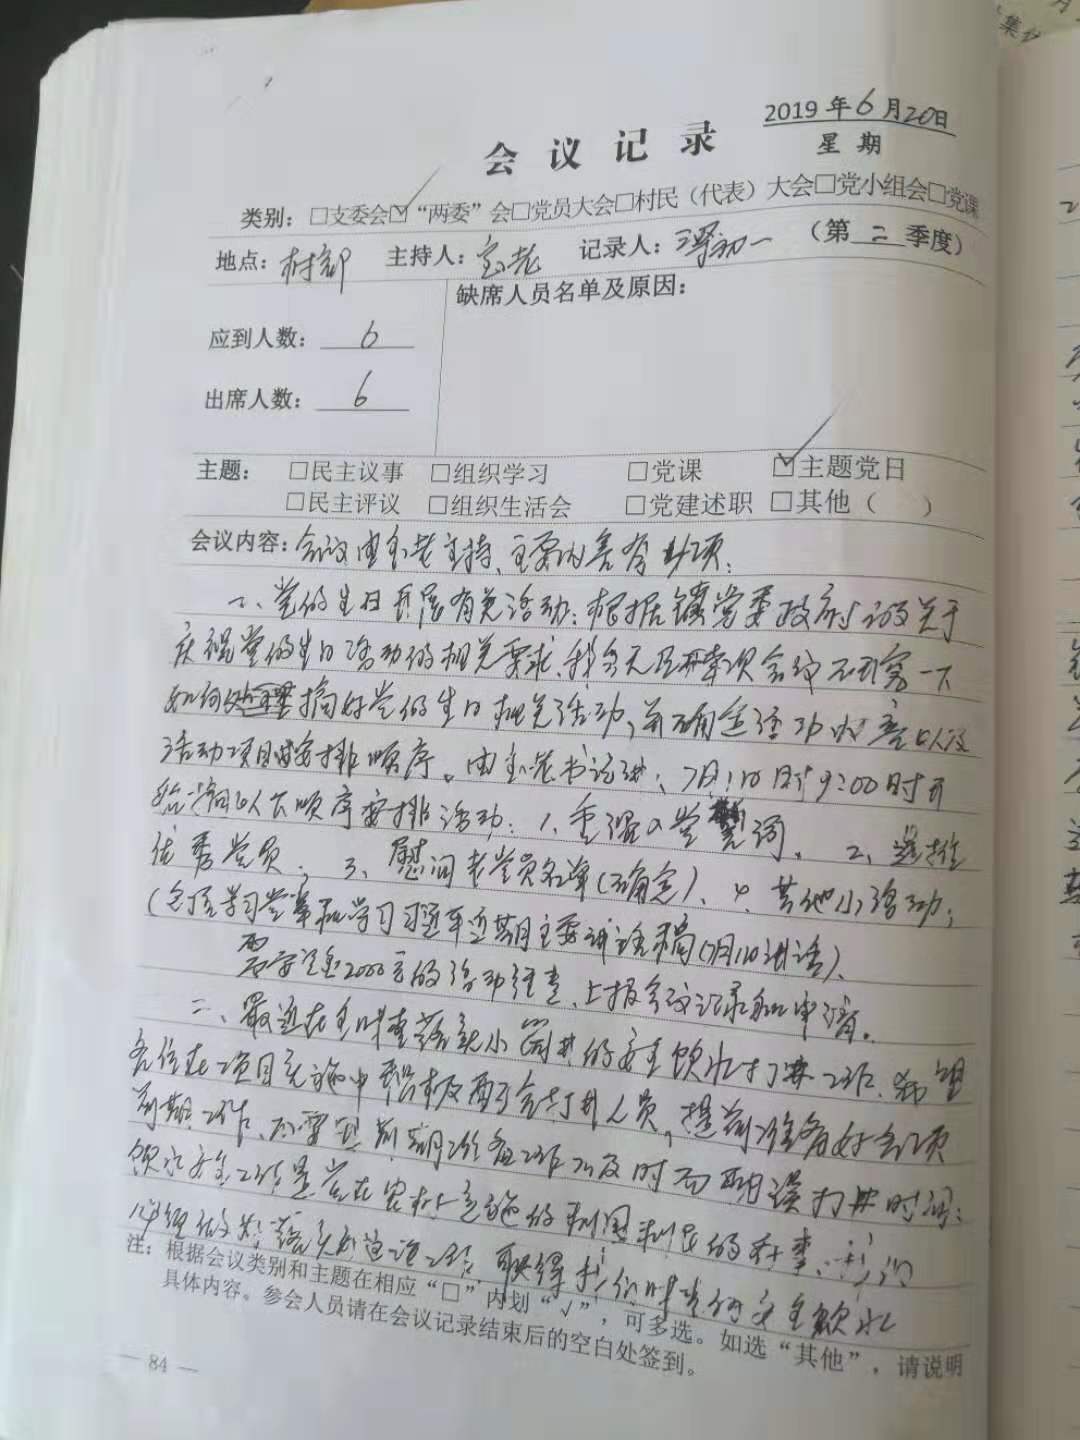 2019年6月20日
会议记录 星期
类别：□支委会☑“两委”会□党员大会□村民（代表）大会□党小组会□党课
地点：村部 主持人： 记录人： （第二季度）
缺席人员名单及原因：
应到人数：6
出席人数：6
主题：□民主议事 □组织学习 □党课 ☑主题党日
□民主评议 □组织生活会 □党建述职 □其他（ ）
会议内容：会议由 主持、主要内容有 项：
一、党的生日开展有关活动：根据镇党委政府 关于
庆祝党的生日活动的相关要求，我们今天召开 次会议 研究一下
如何 搞好党的生日相关活动，并确定活动内容以及
活动项目 安排顺序。由 书记讲：7月1日 9:00时开
始 以下顺序安排活动：1、重温入党誓词、2、选推
优秀党员；3、慰问老党员名单（确定）、4、其他小活动；
（包括学习党章和学习习近平近期主要讲话稿（7月1日讲话）、
2000元的活动经费，上报会议记录和申请。
二、最近在 小 井的安全饮水打井工作，希望
各位在项目实施中积极配合打井人员，提前准备好各项
前期工作、 前期准备工作 及时而耽误打井时间；
饮水安全工作是党在农村实施的利国利民的好事，我们
必须做 落实好这项工作， 的安全饮水
注：根据会议类别和主题在相应“□”内划“√”，可多选。如选“其他”，请说明
具体内容。参会人员请在会议记录结束后的空白处签到。
— 84 —